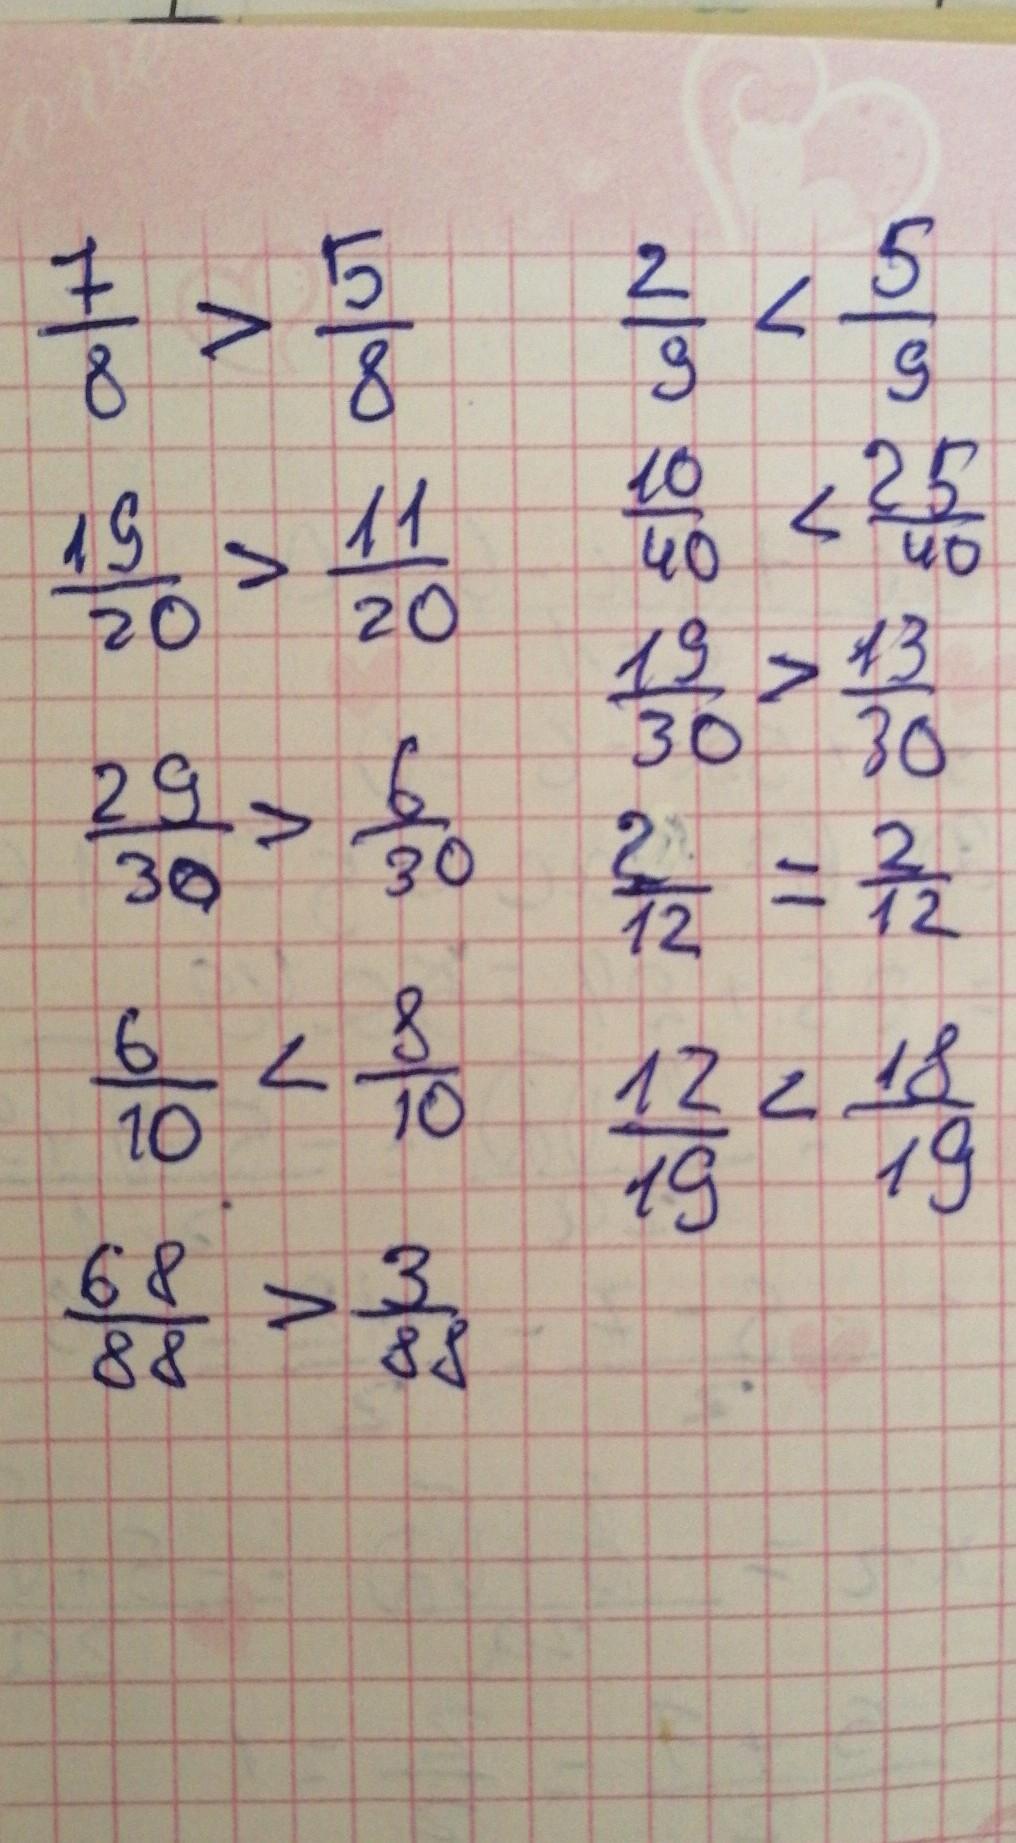 7/8 > 5/8
19/20 > 11/20
29/30 > 6/30
6/10 < 8/10
68/88 > 3/88
2/9 < 5/9
10/40 < 25/40
19/30 > 13/30
2/12 = 2/12
12/19 < 18/19